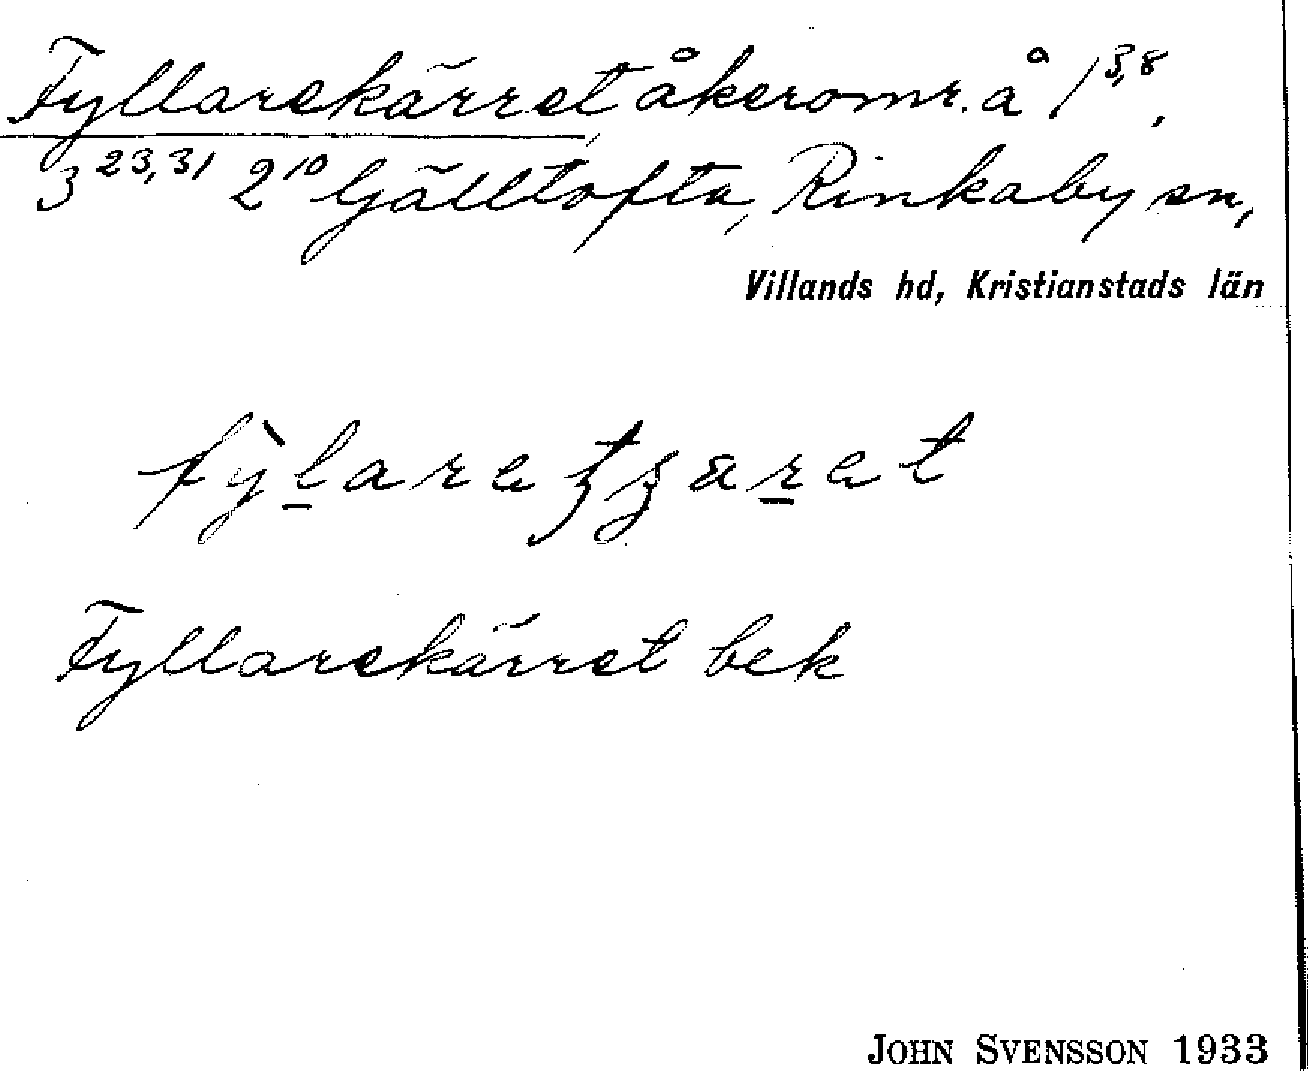 Fyllarekärret åkeromr. å 1 3,8,
3 23,31 2 10 Gälltofta, Rinkaby sn,
Villands hd, Kristianstads län
Fyllarekärret bek
JOHN SVENSSON 1933